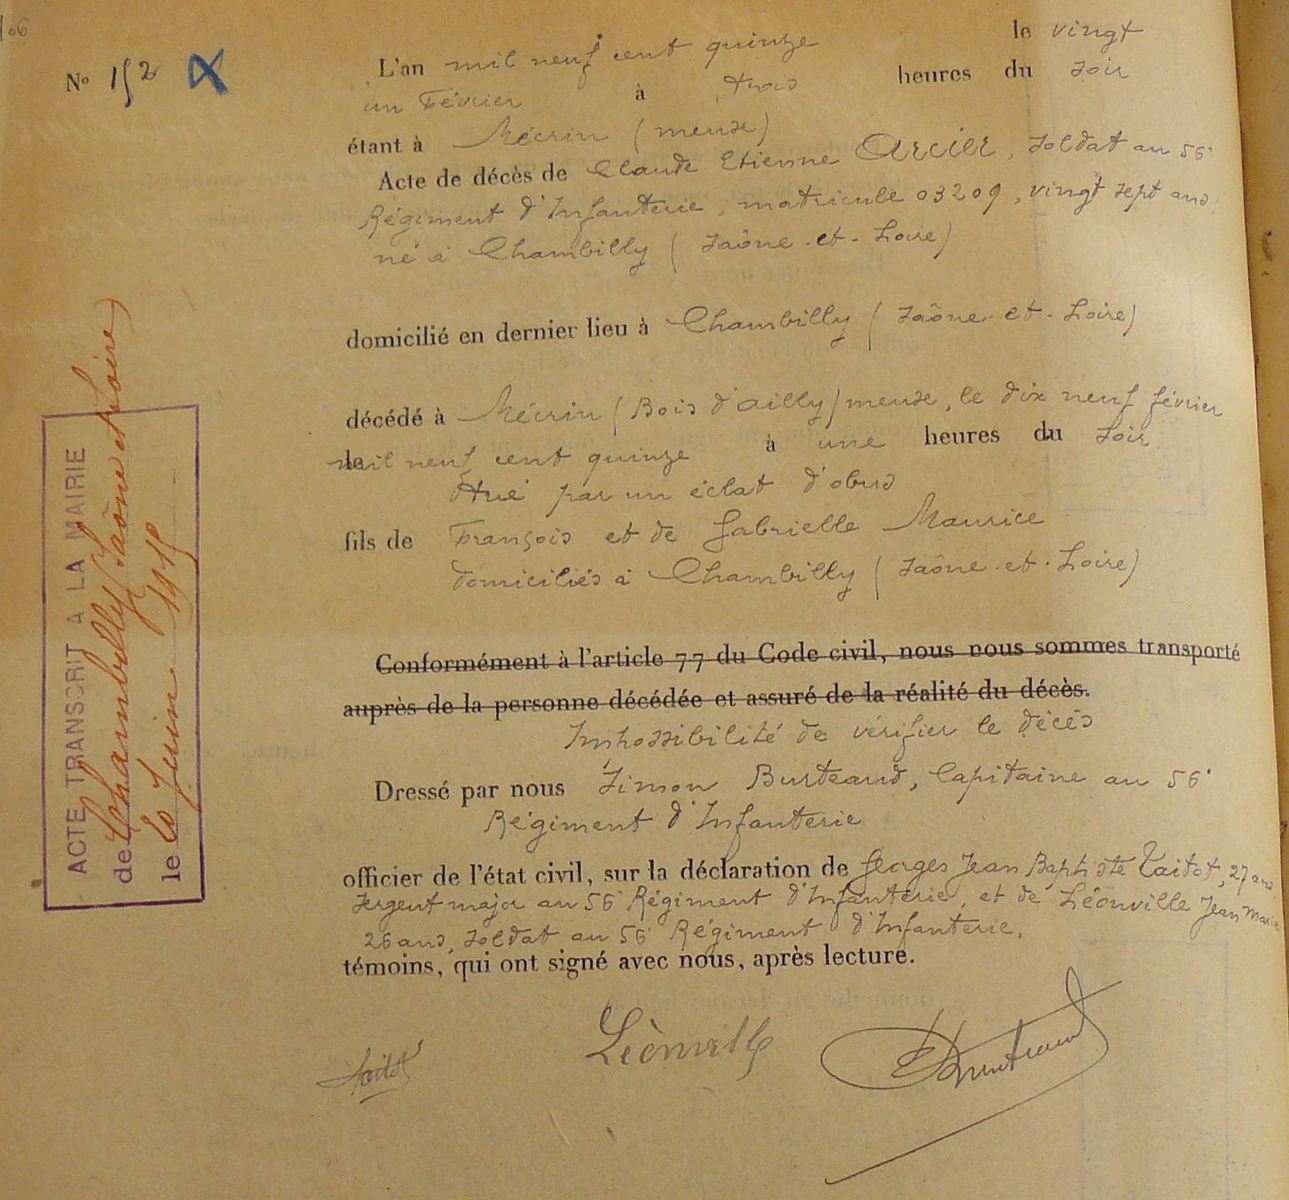 106
N° 152
L'an mil neuf cent quinze le vingt
un Février à trois heures du soir
étant à Mécrin (meuse)
Acte de décès de Claude Etienne Arcier, soldat au 56e
Régiment d'Infanterie, matricule 03209, vingt sept ans
né à Chambilly (Saône-et-Loire)
domicilié en dernier lieu à Chambilly (Saône-et-Loire)
décédé à Mécrin (Bois d'ailly) meuse, le dix neuf février
le mil neuf cent quinze à une heures du soir
tué par un éclat d'obus
fils de François et de Gabrielle Maurice
domiciliés à Chambilly (Saône-et-Loire)
Conformément à l'article 77 du Code civil, nous nous sommes transporté
auprès de la personne décédée et assuré de la réalité du décès.
Impossibilité de vérifier le décès
Dressé par nous Simon Burteaud, Capitaine au 56e
Régiment d'Infanterie
officier de l'état civil, sur la déclaration de Georges Jean Baptiste Taitot, 27 ans
sergent major au 56e Régiment d'Infanterie, et de Léonville Jean Marie
26 ans, soldat au 56e Régiment d'Infanterie,
témoins, qui ont signé avec nous, après lecture.
Taitot Léonville Burteaud
ACTE TRANSCRIT A LA MAIRIE
de Chambilly (Saône et Loire)
le 10 Juin 1915